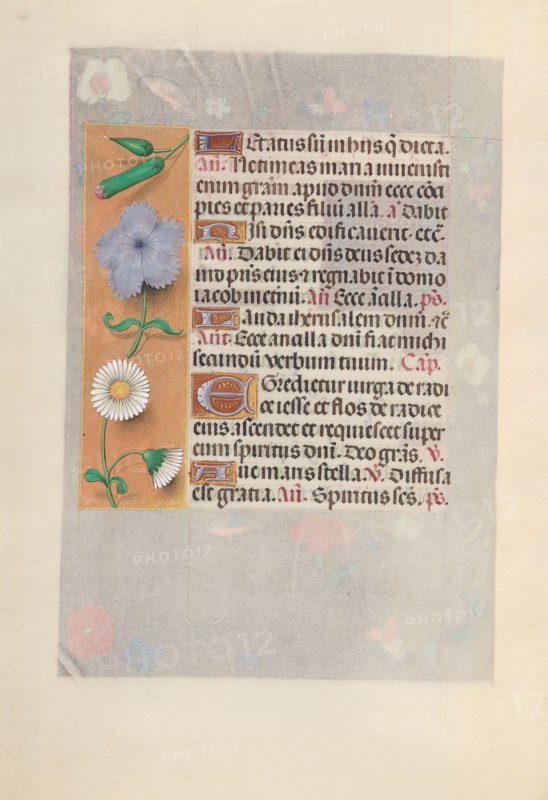 Letatus sũ in his q̃ dicta.
Añ. Ne timeas maria inuenisti
enim grãm apud dnm̃ ecce cõci
pies et paries filiũ alla. a. Dabit
Nisi dñs edificauerit. etc̃.
Añ. Dabit ei dñs deus sedẽ da
uid pr̃is eius ⁊ regnabit ĩ domo
iacob in etnũ. Añ Ecce ãcilla. ps.
Lauda iherusalem dnm̃. ⁊c̃
Añt. Ecce ancilla dnĩ fiat michi
secundũ verbum tuum. Cap.
Egredietur uirga de radi
ce iesse et flos de radice
eius ascendet et requiescet super
eum spiritus dnĩ. Deo grãs. V.
Aue maris stella. V. Diffusa
est gratia. Añ. Spiritus sc̃s. ps.
PHOTO12
PHOTO12
PHOTO12
PHOTO12
PHOTO12
PHOTO12
PHOTO12